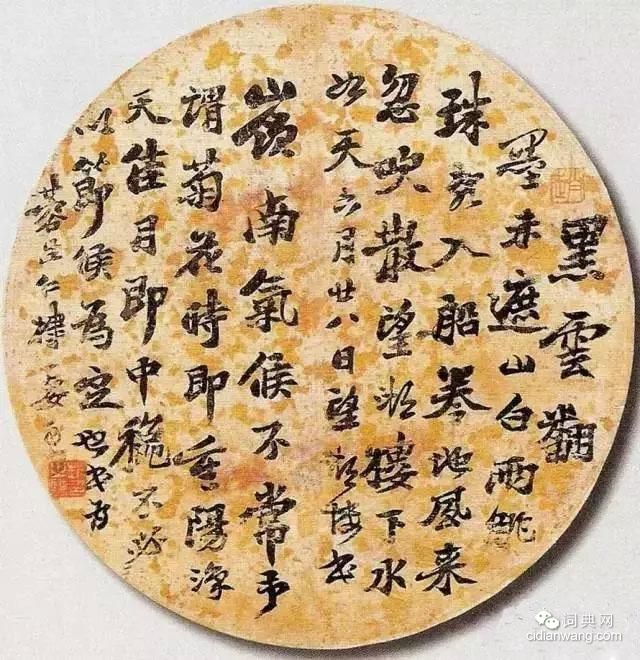 黑雲翻
墨未遮山白雨跳
珠亂入船卷地風来
忽吹散望湖樓下水
如天六月廿八日望湖樓書
嶺南氣候不常予
謂菊花時即重陽涼
天佳月即中穐不必
以節候為定也書為
仁棣
词典网
cidianwang.com